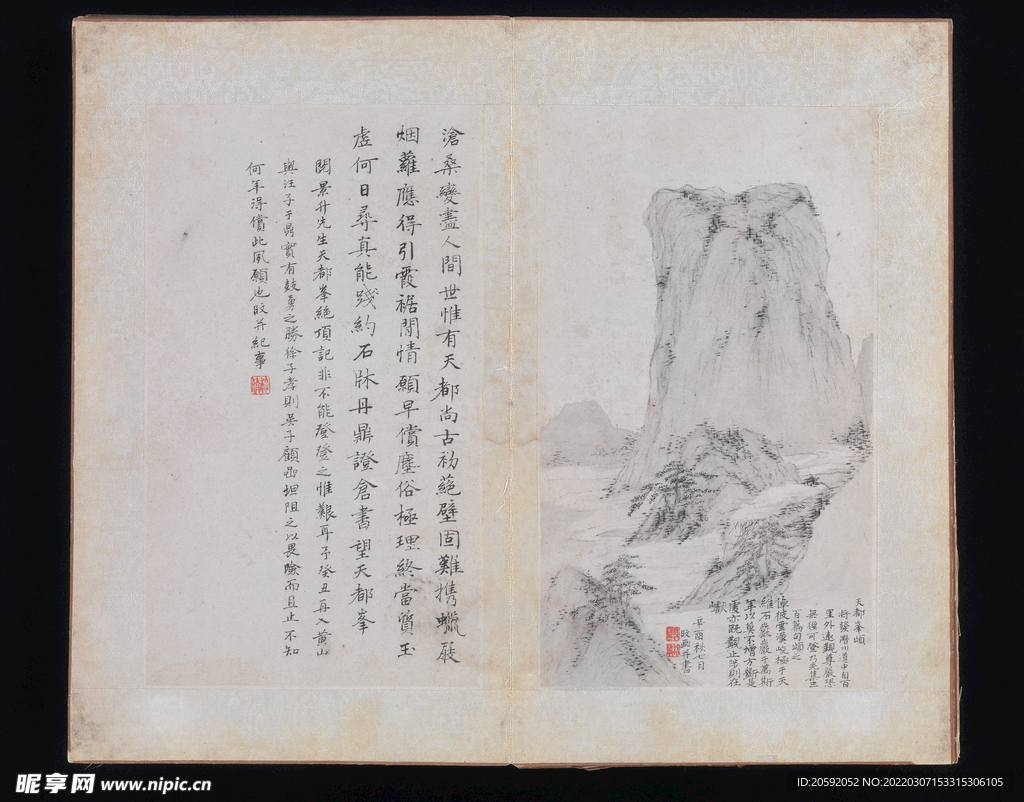 滄桑變盡人間世惟有天都尚古初蒼壁固難携蠟屐
烟蘿應得引霞裾閒情願早償塵俗極理終當寶玉
虛何日尋真能踐約石牀丹鼎證倉書望天都峯
閱景升先生天都峯絕頂記非不能登登之惟艱耳予癸丑再入黃山
與汪子于鼎實有鼓勇之勝徐子孝則吳子顧坦阻之以畏險而且止不知
何年得償此夙願也旼并紀事
天都峯頌
將發潛川道中自百
里外遙觀尊嚴恐
無復可登乃先集三
百篇句頌之
倬彼雲漢峻極于天
維石巖巖于萬斯
年以莫不增方斷是
虔亦既觀止陟則在
巘
辛酉秋七月
旼画并書
昵享网 www.nipic.cn
ID:20592052 NO:20220307153315306105